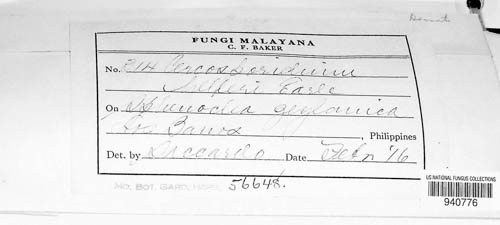 FUNGI MALAYANA
C. F. BAKER
No. 314 Cercosporidium
Helleri Earle
On Sphenoclea zeylanica
Los Banos, Philippines
Det. by Saccardo Date Feb '16
MO. BOT. GARD. HERB. 56648.
US NATIONAL FUNGUS COLLECTIONS
940776